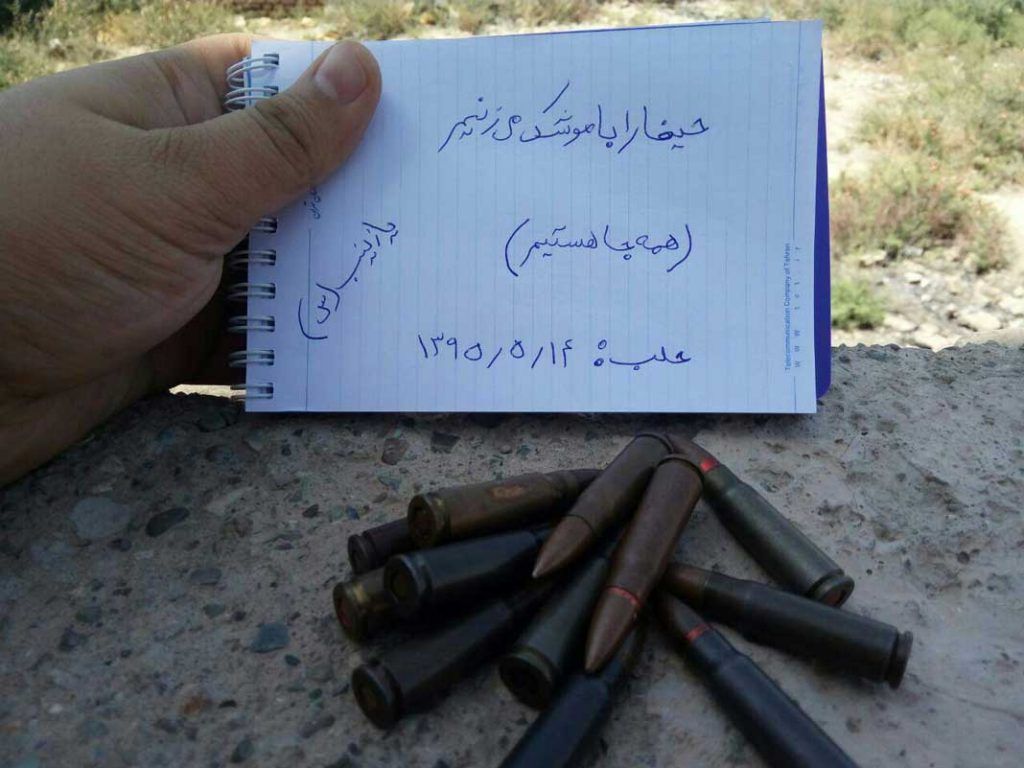 حیفا را با موشک می زنیم
(همه جا هستیم)
حلب: ۱۳۹۵/۵/۱۴
یا زینب (س)
Telecommunication Company of Tehran